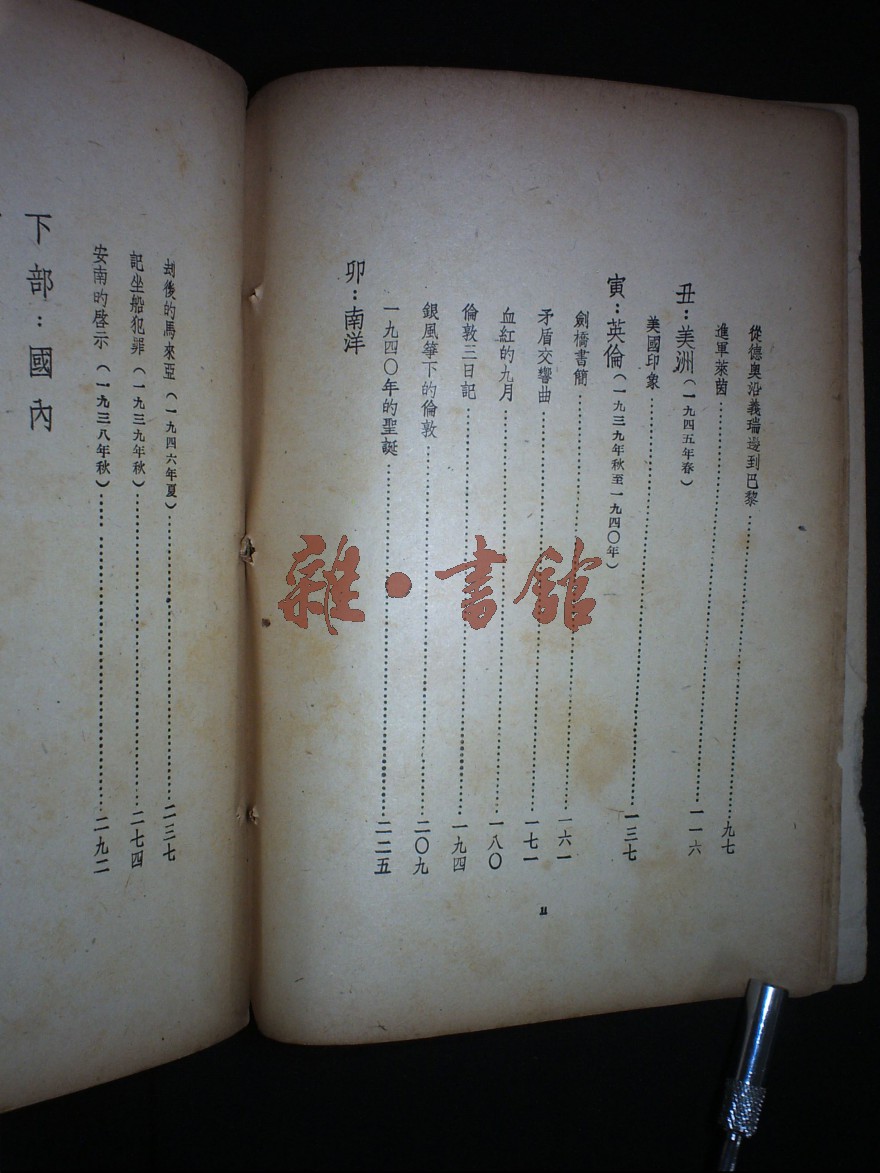 從德奧沿義瑞邊到巴黎……九七
進軍萊茵……一一六
丑：美洲（一九四五年春）
美國印象……一三七
寅：英倫（一九三九年秋至一九四〇年）
劍橋書簡……一六一
矛盾交響曲……一七一
血紅的九月……一八〇
倫敦三日記……一九四
銀風箏下的倫敦……二〇九
一九四〇年的聖誕……二二五
卯：南洋
II
劫後的馬來亞（一九四六年夏）……二三七
記坐船犯罪（一九三九年秋）……二七四
安南的啓示（一九三八年秋）……二九二
下部：國內
雜·書館